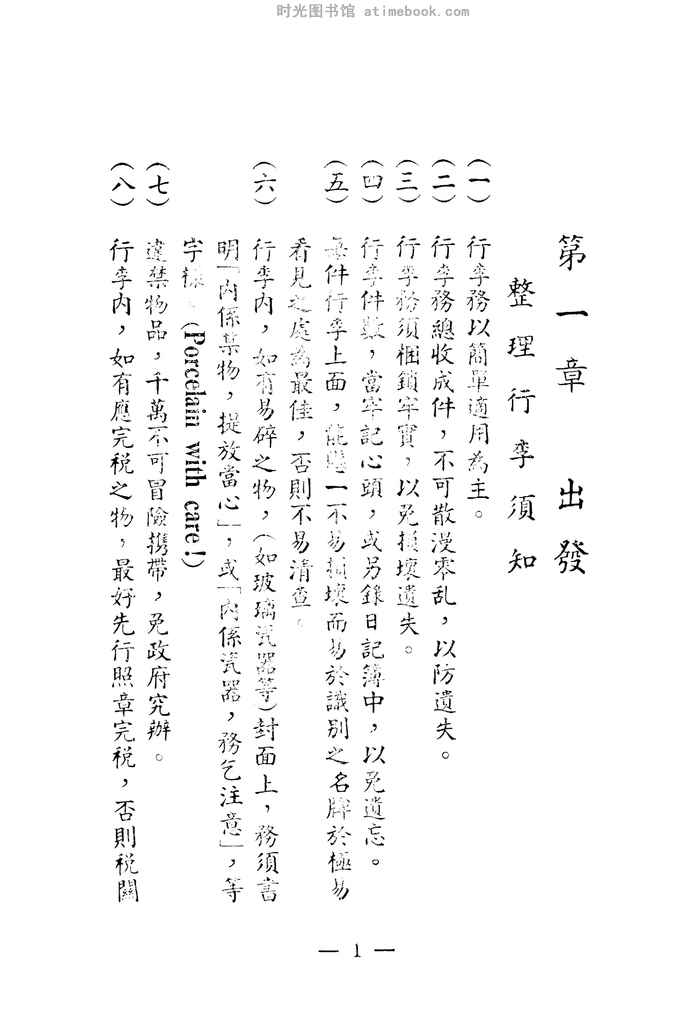 时光图书馆 atimebook.com
第一章 出發
整理行李須知
(一) 行李務以簡單適用為主。
(二) 行李務總收成件，不可散漫零乱，以防遺失。
(三) 行李務須捆鎖牢實，以免損壞遺失。
(四) 行李件數，當牢記心頭，或另錄日記簿中，以免遺忘。
(五) 每件行李上面，能懸一不易損壞而易於識别之名牌於極易
看見之處為最佳，否則不易清查。
(六) 行李内，如有易碎之物，(如玻璃瓷器等)封面上，務須書
明「内係禁物，提放當心」，或「内係瓷器，務乞注意」，等
字樣。(Porcelain with care!)
(七) 違禁物品，千萬不可冒險携帶，免政府究辦。
(八) 行李内，如有應完税之物，最好先行照章完税，否則税關
— 1 —